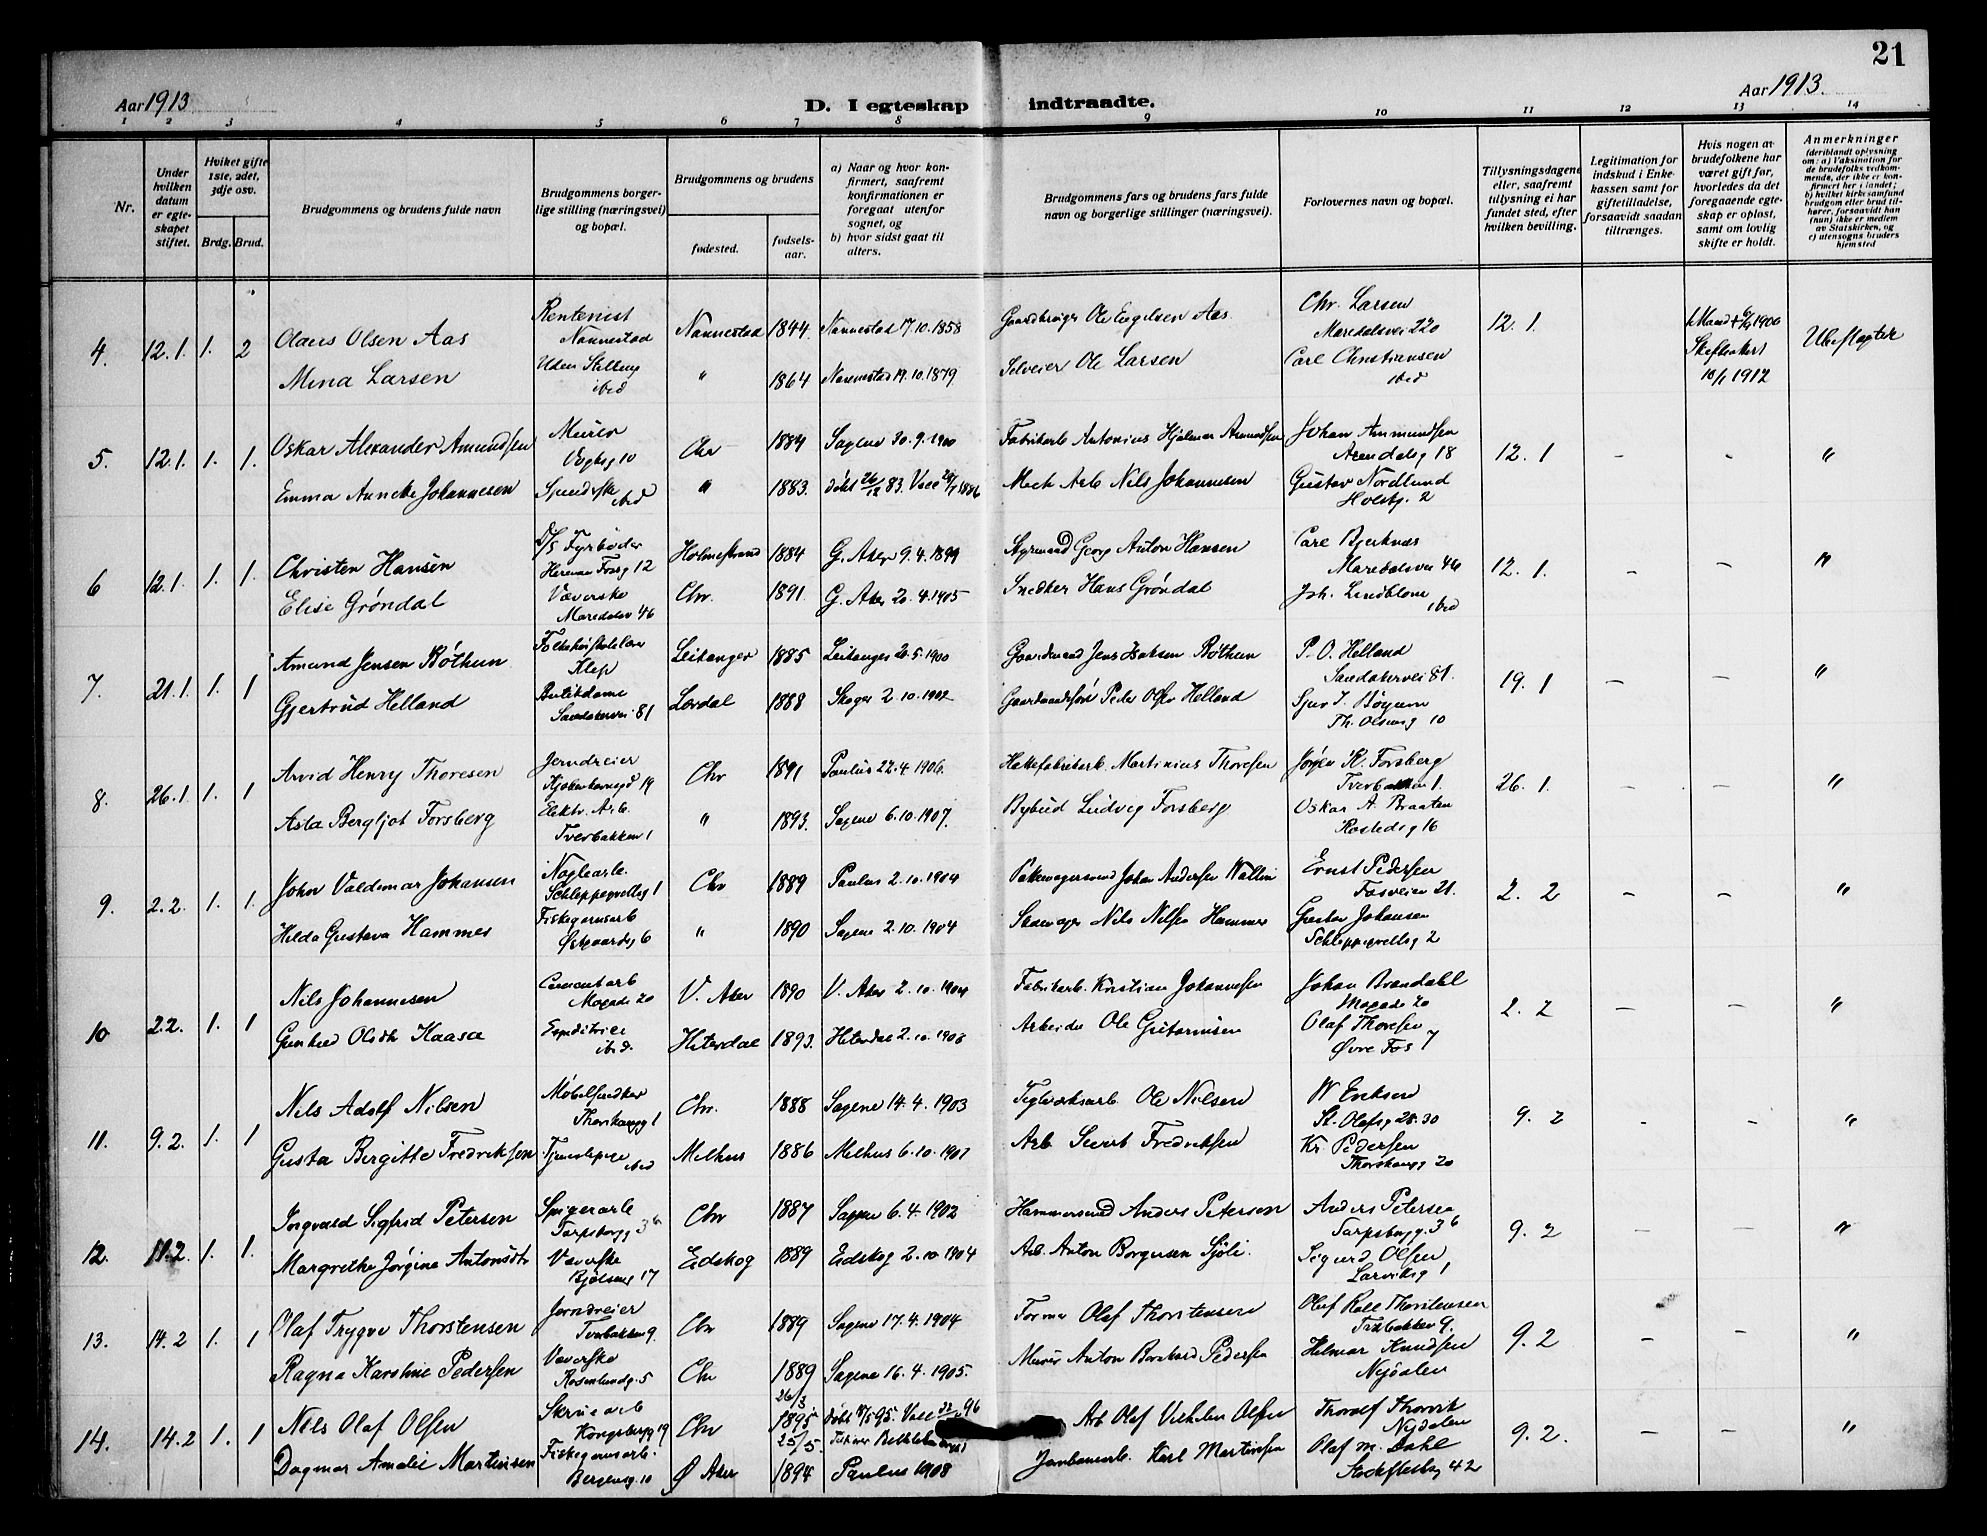 21
Aar 1913
D. I egteskap indtraadte.
Aar 1913.
1 2 3 4 5 6 7 8 9 10 11 12 13 14
Nr.
Under hvilken datum er egteskapet stiftet.
Hvilket gifte 1ste, 2det, 3dje osv.
Brdg. Brud.
Brudgommens og brudens fulde navn
Brudgommens borgerlige stilling (næringsvei) og bopæl.
Brudgommens og brudens
fødested.
fødselsaar.
a) Naar og hvor konfirmert, saafremt konfirmationen er foregaat utenfor sognet, og
b) hvor sidst gaat til alters.
Brudgommens fars og brudens fars fulde navn og borgerlige stillinger (næringsvei).
Forlovernes navn og bopæl.
Tillysningsdagene eller, saafremt tillysning ei har fundet sted, efter hvilken bevilling.
Legitimation for indskud i Enkekassen samt for giftetilladelse, forsaavidt saadan tiltrænges.
Hvis nogen av brudefolkene har været gift før, hvorledes da det foregaaende egteskap er opløst, samt om lovlig skifte er holdt.
Anmerkninger
(deriblandt oplysning om: a) Vaksination for de brudefolks vedkommende, der ikke er konfirmert her i landet; b) hvilket kirkesamfund brudgom eller brud tilhører, forsaavidt han (hun) ikke er medlem av Statskirken, og c) utensogns bruders hjemsted
4 12.1. 1. 2
Olaus Olsen Aas Rentenist Nannestad Nannestad 1844 Nannestad 17.10.1858 Gaardbruger Ole Engelsen Aas. Chr. Larsen Maridalsvei 220 12.1.
Mina Larsen Uden Stilling ibid " 1864 Nannestad 19.10.1879 Selveier Ole Larsen Carl Christiansen ibid
1900
1912
5. 12.1. 1. 1.
Oskar Alexander Amundsen Murer Vogtsg 10 Chr 1884 Sagene 30.9.1900 Fabrikarb Antonius Hjalmar Amundsen Johan Ammundsen Arendalsg 18 12.1 - - "
Emma Anneke Johannesen ibid " 1883. døbt 26/12 83. 1886 Mek Arb Nils Johannesen Gustav Nordlund Holstg. 2
6 12.1. 1. 1.
Christen Hansen D/S Fyrbøder Herman Fossg 12 Holmestrand 1884 G. Aker 9.4.1899 Styrmand Georg Anton Hansen Carl Bjerknæs Maridalsvei 46 12.1. - - "
Elise Grøndal Væverske Maridalsv 46 Chr. 1891. G. Aker 20.4.1905 Snedker Hans Grøndal Joh. Lindblom ibid
7. 21.1. 1. 1
Amund Jensen Bøthun Klep Leikanger 1885 Leikanger 20.5.1900 Gaardmand Jens Bøthun P. O. Helland Sandakervei 81. 19.1 - - "
Gjertrud Helland Butikdame Sandakervei 81 Lærdal 1888 Skoger 2.10.1902 Peder Olsen Helland Sjur J. Bøyum Th. Olsensg 10
8. 26.1. 1. 1
Arvid Henry Thoresen Jerndreier 19 Chr 1891 Paulus 22.4.1906. Hattefabrikarb. Martinius Thoresen Jørgen K. Forsberg Tverbakken 1. 26.1. - - "
Asta Bergljot Forsberg Elektr. Arb. Tverbakken 1 " 1893. Sagene 6.10.1907. Bybud Ludvig Forsberg Oskar A. Braaten 16
9. 2.2. 1. 1.
John Valdemar Johansen Schleppegrellsg 1 Chr 1889 Paulus 2.10.1904 Johan Andersen Wallin Ernst Pedersen Fosveien 21. 2.2 - - "
Hilda Gustava Hammer Fiskegarnsarb Østgaardsg 6 " 1890 Sagene 2.10.1904 Nils Nilsen Hammer Gustav Johansen Schleppegrellsg 2
10 2.2. 1. 1
Nils Johannesen Cementarb 20 V. Aker 1890 V. Aker 2.10.1904 Fabrikarb. Kristian Johannesen Johan Brandahl 20 2.2 - - "
Gunhild Olsdtr Kaasa Expeditrice ibid. Hiterdal 1893. Hiterdal 2.10.1908 Arbeider Ole Guttormsen Olaf Thoresen Øvre Fos 7
11. 9.2. 1. 1
Nils Adolf Nilsen Møbelsnedker 1 Chr. 1888 Sagene 14.4.1903 Teglværksarb. Ole Nilsen W Eriksen St. Olafsg 28.30 9.2 - - "
Gusta Bergitte Fredriksen Tjenestepige ibid Melhus 1886 Melhus 6.10.1901 Arb Sivert Fredriksen Kr. Pedersen 20
12. 11.2. 1. 1.
Ingvald Sigfrid Petersen Spigerarb Tarpsborgg 3b Chr 1887 Sagene 6.4.1902 Hammersmed Anders Petersen Anders Petersen Tarpsborgg. 3b 9.2 - - "
Margrethe Jørgine Antonsdtr Væverske Bjølseng 17 Eidskog 1889 Eidskog 2.10.1904 Arb. Anton Borgersen Sjøli. Sigurd Olsen Larviksg 1
13. 14.2 1. 1
Olaf Trygve Thorstensen Jerndreier Tverbakken 9. Chr 1889 Sagene 17.4.1904 Former Olaf Thorstensen Olaf Thorstensen Tverbakken 9. 9.2 - - "
Ragna Karoline Pedersen Væverske Rosenlundg. 5 Chr 1889 Sagene 16.4.1905. Murer Anton Pedersen Helmar Knudsen Nydalen
14. 14.2 1. 1
Nils Olaf Olsen Skruearb Kongsbergg 19 Chr 26/3 1895 Døbt 95. 96 Arb Olaf Vilhelm Olsen Thoralf Nydalen 9.2. - - "
Dagmar Amalie Martinsen Fiskegarnsarb. Bergensg. 10 Ø Aker 25/5. 1894 Paulus 1908 Jernbanearb. Karl Martinsen Olaf M. Dahl 42